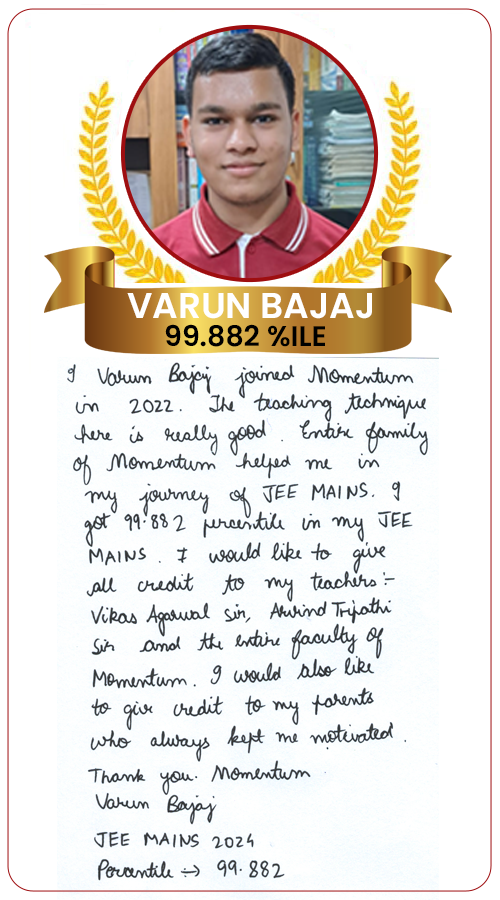 VARUN BAJAJ
99.882 %ILE
I Varun Bajaj joined Momentum
in 2022. The teaching technique
here is really good. Entire family
of Momentum helped me in
my journey of JEE MAINS. I
got 99.882 percentile in my JEE
MAINS. I would like to give
all credit to my teachers :-
Vikas Agarwal Sir, Arvind Tripathi
Sir and the entire faculty of
Momentum. I would also like
to give credit to my parents
who always kept me motivated.
Thank you. Momentum
Varun Bajaj
JEE MAINS 2024
Percentile → 99.882